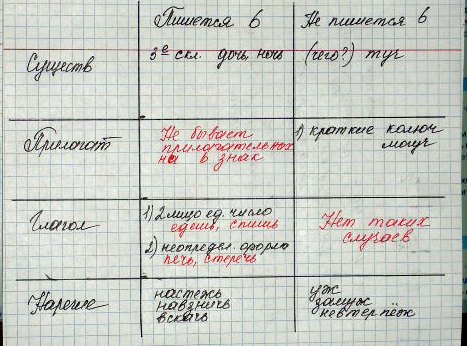 Пишется ь
Не пишется ь
Существ
3е скл. дочь, ночь
(чего?) туч
Прилагат
Не бывает
прилагательных
на ь знак
1) краткие колюч
могуч
Глагол
1) 2 лицо ед. число
едешь, спишь
2) неопредел. форма
печь, стеречь
Нет таких
случаев
Наречие
настежь
навзничь
вскачь
уж
замуж
невтерпёж